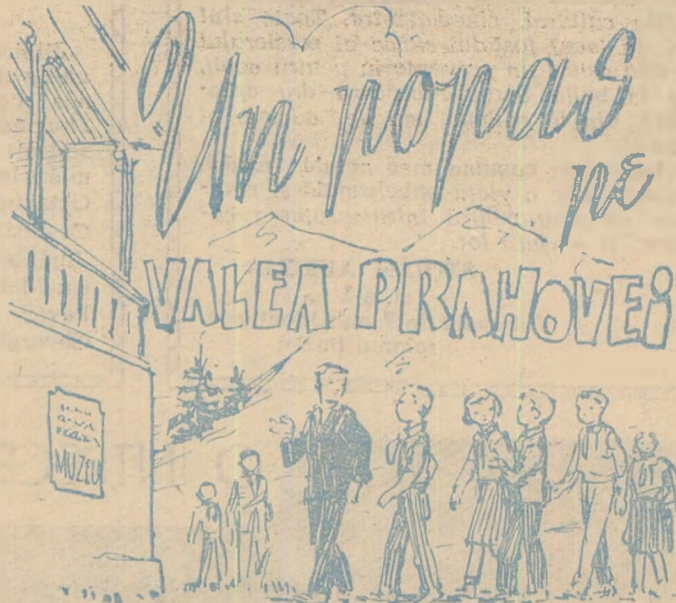 Un popas
pe
VALEA PRAHOVEI
MUZEU